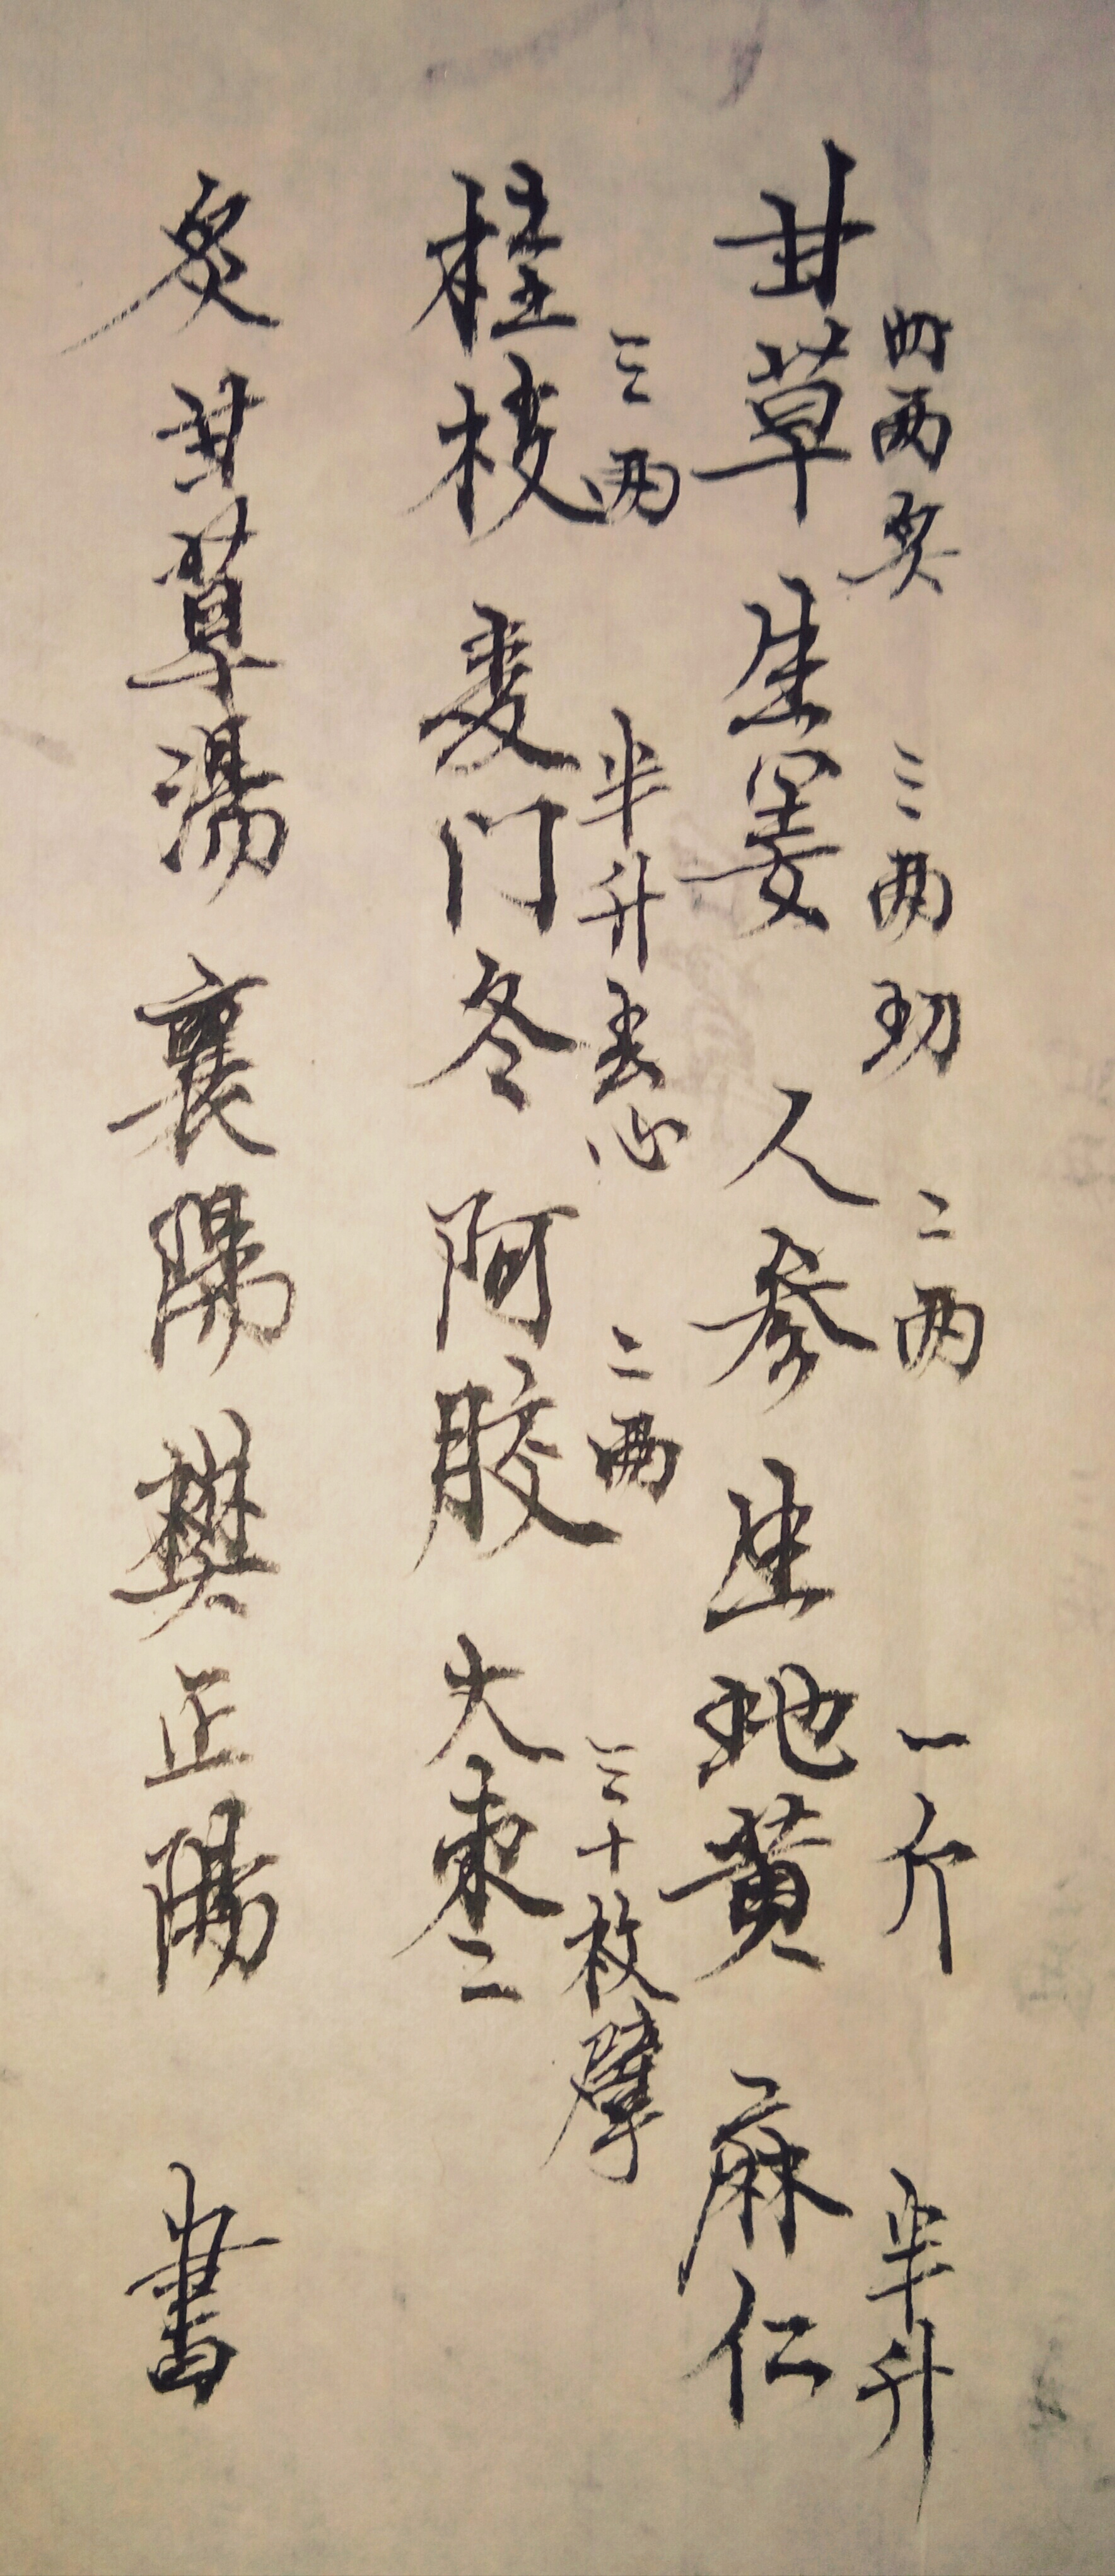 四两炙 三两切 二两 一斤 半升
甘草 生姜 人参 生地黄 麻仁
三两 半升去心 二两 三十枚擘
桂枝 麦门冬 阿胶 大枣
炙甘草湯 襄陽 樊正陽 書